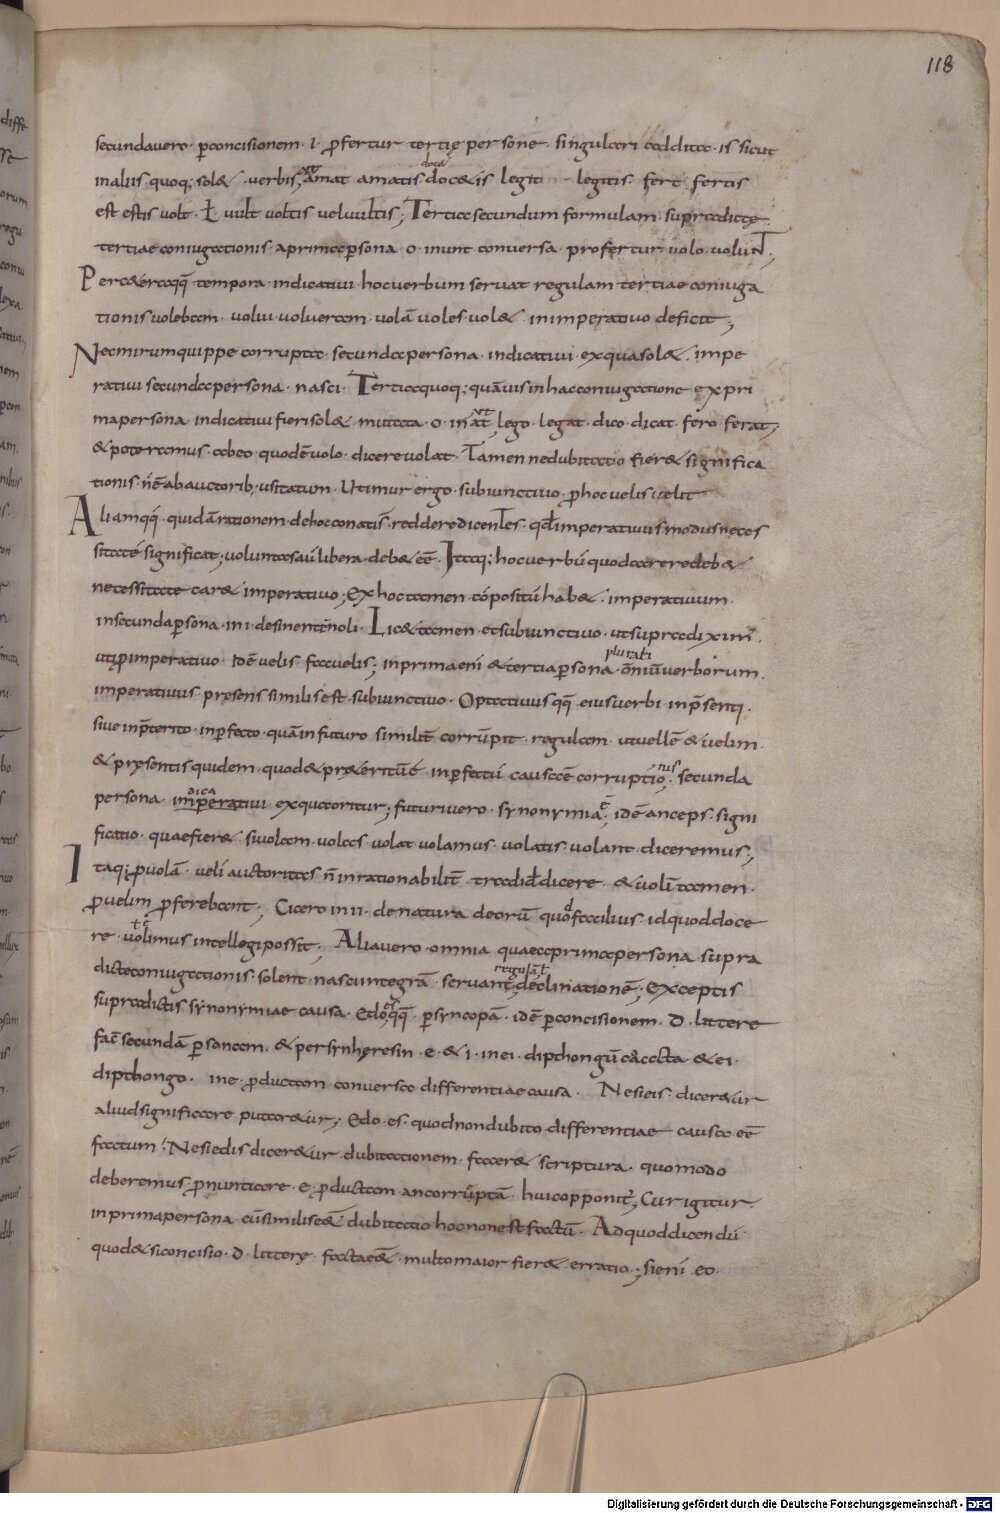 118
secunda vero · ꝑ concisionem · i · ꝓfertur tertię persone · singulari addita · is sicut
in aliis quoq; sol& · verbis, ut amat amatis doc& doc&is legit · legitis fert fertis
est estis volt · ł vult voltis vel vultis; Tertia secundum formulam supradictę
tertiae coniugationis a prima ꝑsona · o · in unt conversa · profertur volo · volunt;
Per c&eraqq̄ · tempora · indicativi · hoc verbum servat regulam tertiae coniuga
tionis volebam · volui · volueram · volā voles · vol& · in imperativo deficit;
Nec mirum quippe corrupta · secunda persona · indicativi · ex qua sol& · impe
rativi secunda persona · nasci · Tertia quoq; quāvis in hac coniugatione ex pri
ma persona indicativi fieri sol& mutata · o · in at ut lego · legat · dico · dicat · fero · ferat;
& poteramus · ab eo quod ē volo · dicere volat · Tamen ne dubitatio fier& significa
tionis n̄ ē ab auctorib; usitatum · Utimur ergo · subiunctivo · ꝓ hoc velis velit
Aliam qq̄ · quidā rationem de hoc conatis redderedicentes · qđ imperativus modus neces
sitatē significat; voluntas aū libera deb& eē · Itaq; hoc verbū quo da&re re deb&
necessitate car& imperativo; Ex hoc tamen cōpositū hab& · imperativum
in secunda ꝑsona · in i · desinentē noli · Lic& tamen et subiunctivo · ut supra diximꝰ
uti ꝓ imperativo · Idē velis facvelis; in prima eni & tertia ꝑsona · plurali omniū verborum
imperativus pręsens similis est · subiunctivo · Optativus qq̄ · eius verbi · in p̄senti ·
sive in p̄terito · in ꝑfecto · quā in futuro similit̄ corrūpit · regulam · ut vellē & velim
& pręsentis quidem · quod & pr&eritū ē inperfectū causa ē corruptionis; secunda
persona · imperativi dica ex qua oritur; futuri vero · synonymia ē · idē anceps · signi
ficatio · quae fier& · si volam · voles · volat volamus · volatis · volant diceremus;
Itaq; ꝓ volā · velī auctoritas n̄ inrationabilit̄ · tradid& dicere · & volī tamen ·
ꝓ velim ꝓferebant; Cicero in · ii · de natura deorū quod facilius · id quod doce
re · volimus intellegi possit; Alia vero · omnia quae a prima persona supra
dictae coniugationis · solent · nasci integrā servant; regulā ł declinationē; exceptis
supradictis synonymiae causa · Edo qq̄ · es ꝑ syncopā · idē ꝑ concisionem · d · littere
facē secundā ꝑsonam · & per synheresin · e · & i · in ei · dipthongū coacta & ei ·
dipthongo · in e ꝓductam · conversa differentiae causa · Ne si eis · dicer&ur
aliud significare putar&ur; Edo · es · quod non dubito · differentiae causa · eē
factum · Ne si edis dicer&ur · dubitationem · facer& scriptura · quomodo
deberemus ꝓnuntiare · e · ꝓductam an corrūptā · huic opponit̄; Cur igitur
in prima persona · cū similis eē dubitatio hoc non est factū · Ad quod dicendū
quod & si concisio · d · litterę · facta eē& · multo maior fier& · erratio; si eni · eo
Digitalisierung gefördert durch die Deutsche Forschungsgemeinschaft - DFG